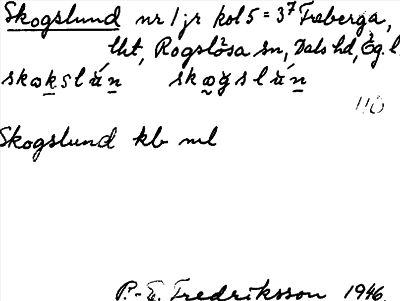 Skogslund nr 1 jr kol 5 = 3⁷ Freberga,
lht, Rogslösa sn, Dals hd, Ög. l.
skoks lán skogslán
110
Skogslund kb ml
P.-E. Fredriksson 1946.